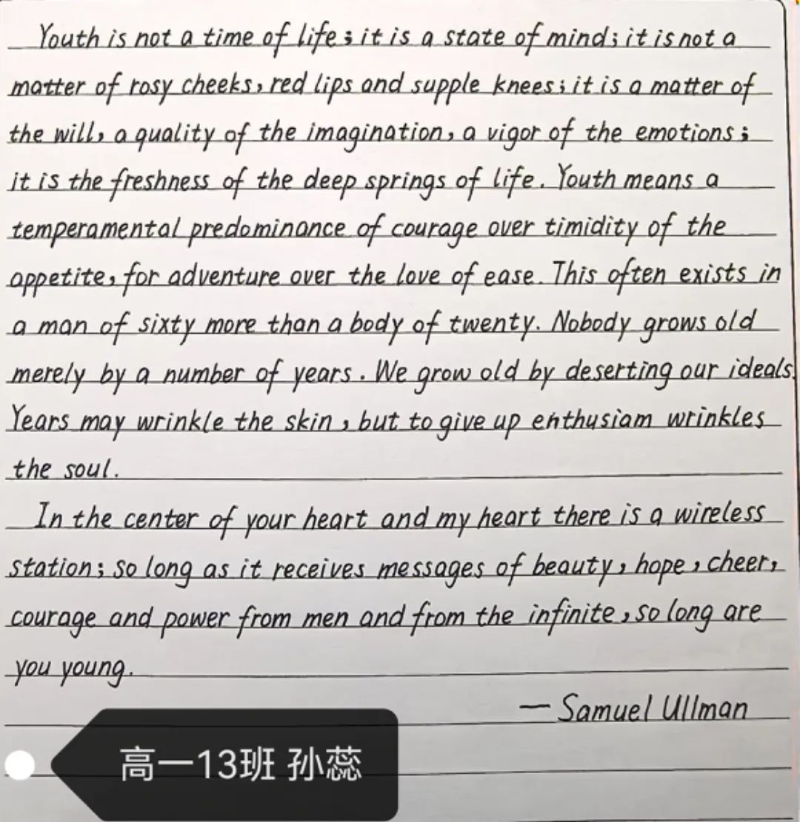 Youth is not a time of life; it is a state of mind; it is not a
matter of rosy cheeks, red lips and supple knees; it is a matter of
the will, a quality of the imagination, a vigor of the emotions;
it is the freshness of the deep springs of life. Youth means a
temperamental predominance of courage over timidity of the
appetite, for adventure over the love of ease. This often exists in
a man of sixty more than a body of twenty. Nobody grows old
merely by a number of years. We grow old by deserting our ideals.
Years may wrinkle the skin, but to give up enthusiam wrinkles
the soul.
In the center of your heart and my heart there is a wireless
station; so long as it receives messages of beauty, hope, cheer,
courage and power from men and from the infinite, so long are
you young.
— Samuel Ullman
高一13班 孙蕊